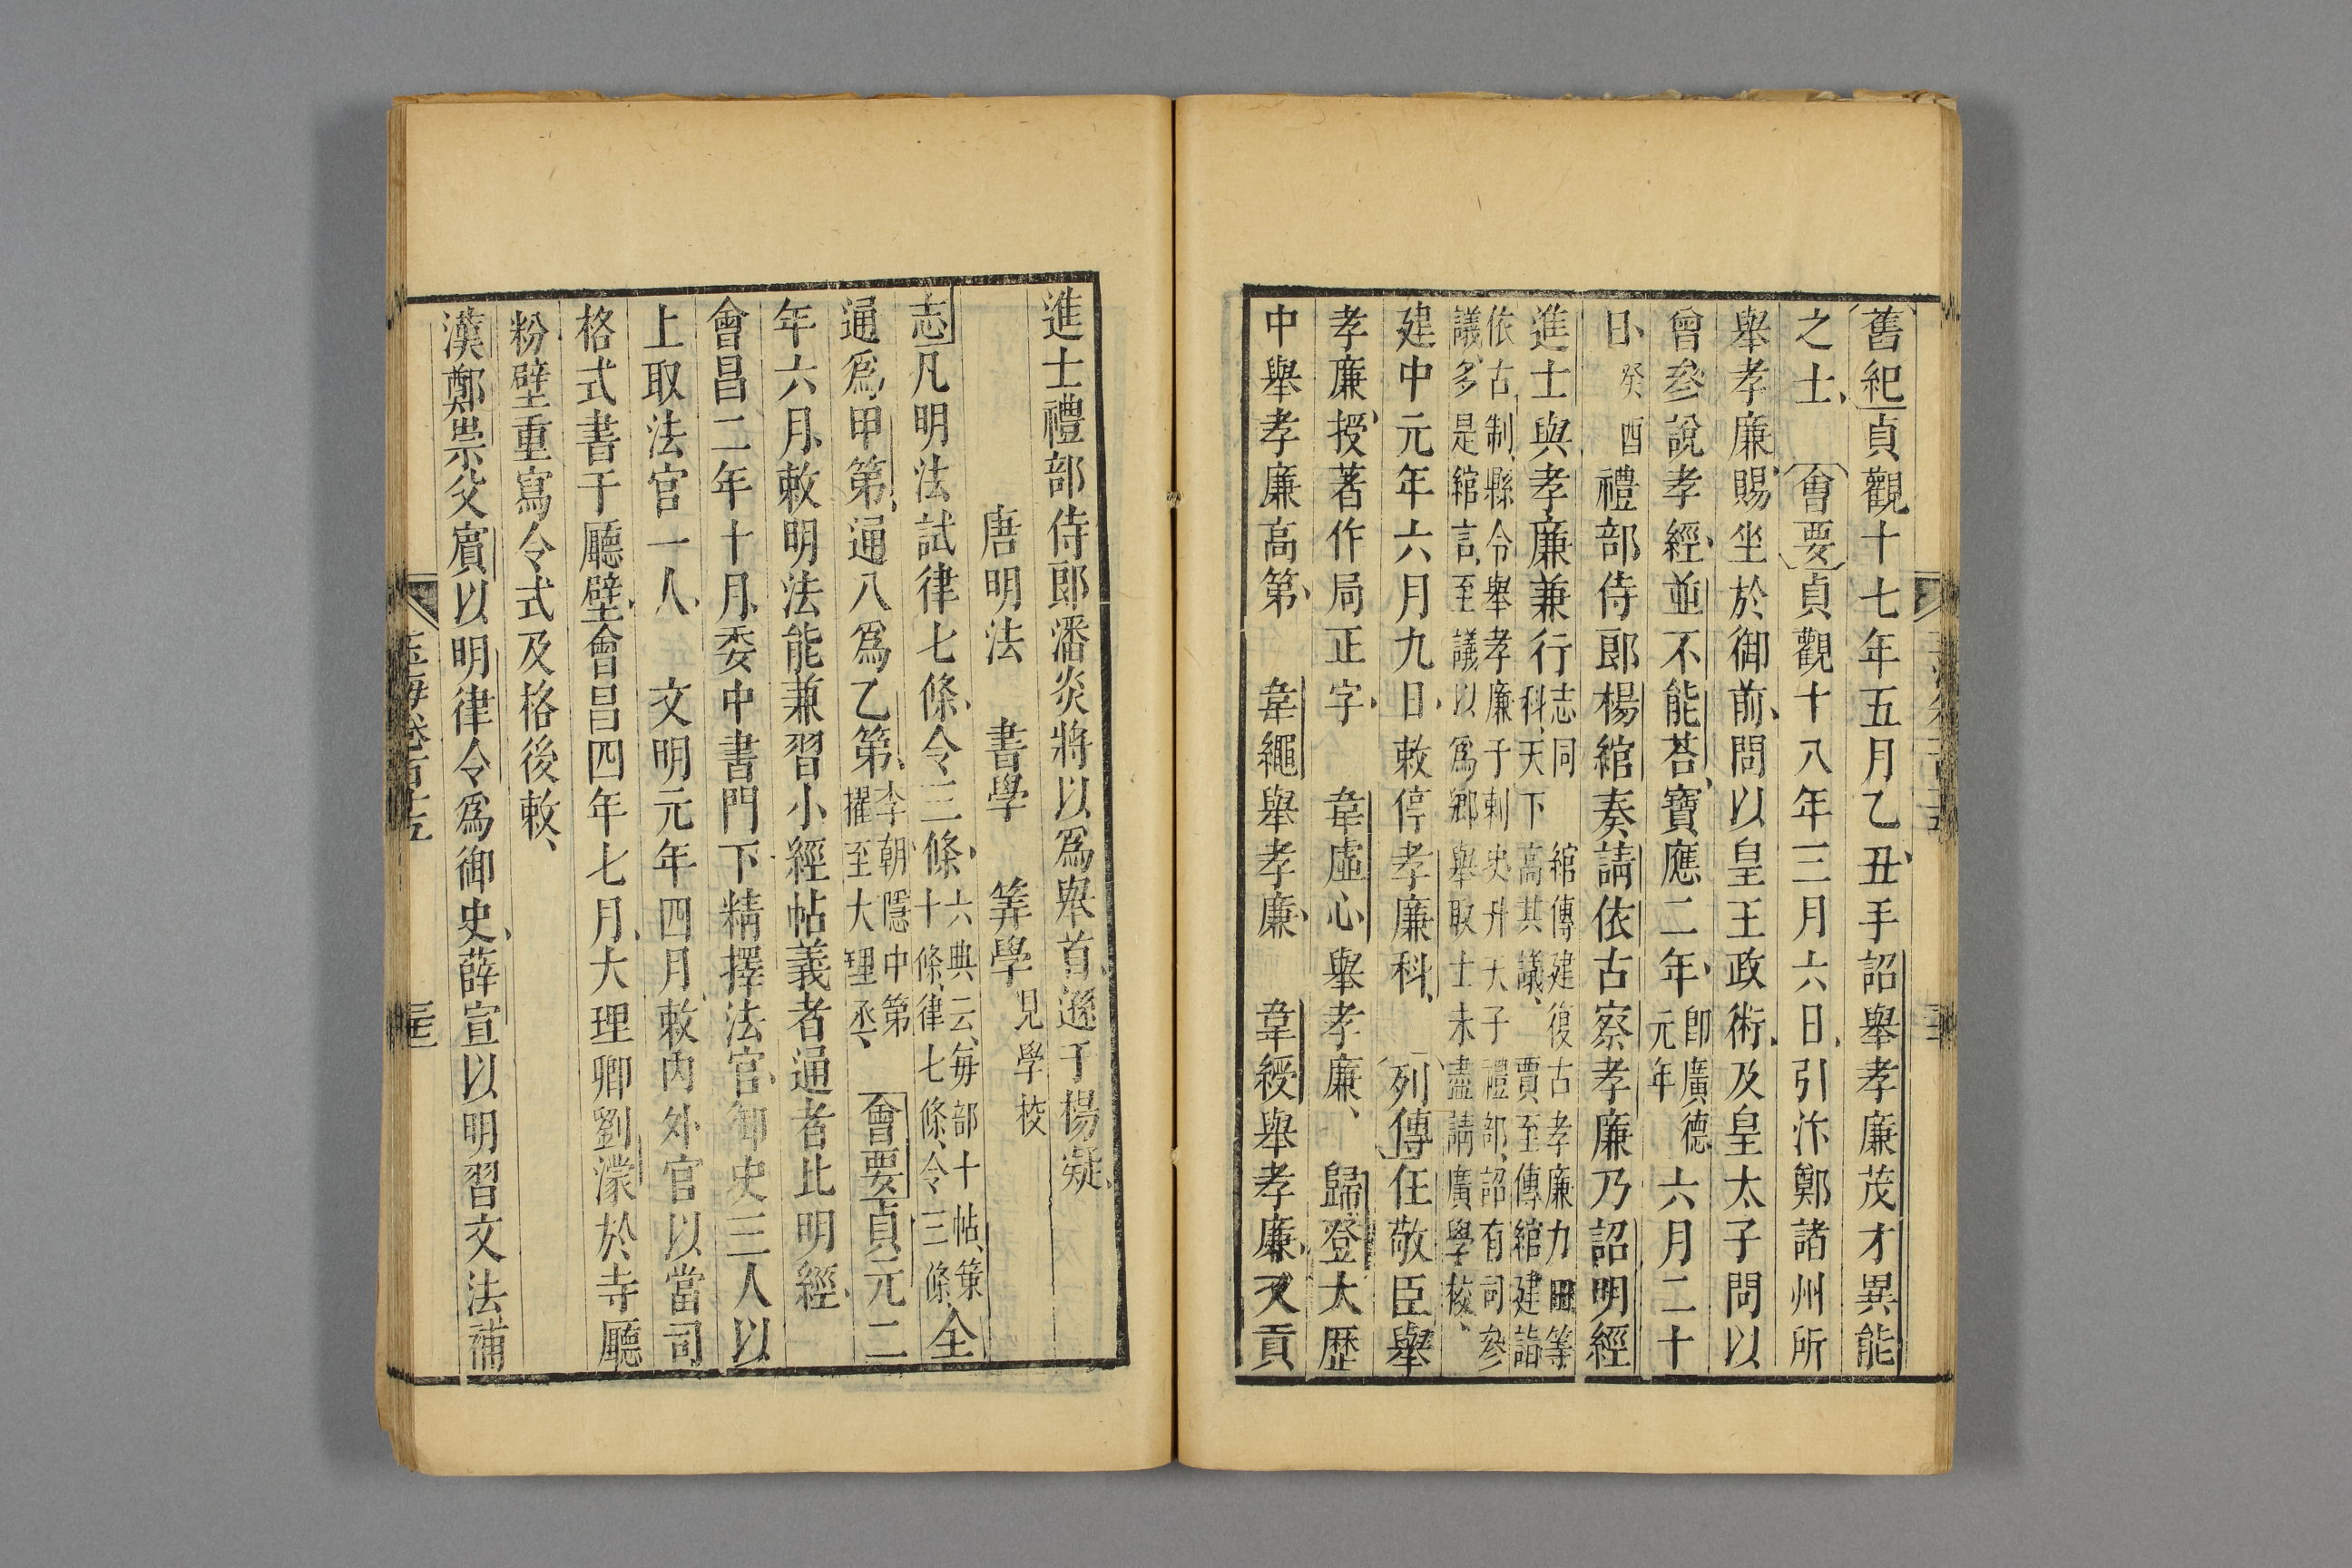 舊紀貞觀十七年五月乙丑手詔舉孝廉茂才異能
之士、會要貞觀十八年三月六日、引汴鄭諸州所
舉孝廉賜坐於御前、問以皇王政術、及皇太子問以
曾參說孝經、並不能荅、寶應二年、卽廣德元年六月二十
日、癸酉禮部侍郎楊綰奏請依古察孝廉乃詔明經
進士與孝廉兼行志同科、天下綰傳建復古孝廉力田等高其議、賈至傳綰建詣
依古制、縣令舉孝廉于刺史升天子禮部、詔有司參議、多是綰言、至議以爲鄉舉取士未盡請廣學校、
建中元年六月九日、敕停孝廉科、列傳任敬臣舉
孝廉、授著作局正字、韋虛心舉孝廉、歸登大歷
中舉孝廉高第、韋繩舉孝廉、韋綬舉孝廉、又貢
進士禮部侍郎潘炎將以爲舉首、遜于楊凝、
唐明法 書學 筭學見學校
志凡明法試律七條、令三條、六典云、每部十帖、策十條、律七條、令三條、全
通爲甲第、通八爲乙第、李朝隱中第擢至大理丞、會要貞元二
年六月、敕明法能兼習小經帖義者通者比明經、
會昌二年十月、委中書門下精擇法官、御史三人以
上取法官一人、文明元年四月敕內外官以當司
格式書于廳壁、會昌四年七月、大理卿劉濛於寺廳
粉壁重寫令式及格後敕、
漢鄭崇父賓以明律令爲御史、薛宣以明習文法補